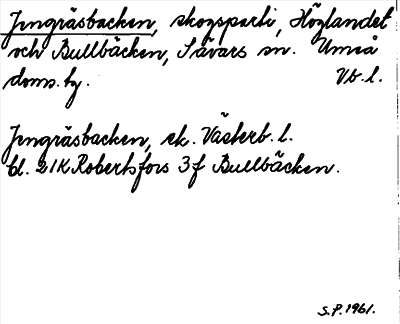 Jungräsbacken, skogsparti, Höglandet
och Bullbäcken, Sävars sn. Umeå
doms. hg. Vb. l.
Jungräsbacken, ek. Västerb. l.
bl. 21K Robertsfors 3f Bullbäcken.
S.P. 1961.